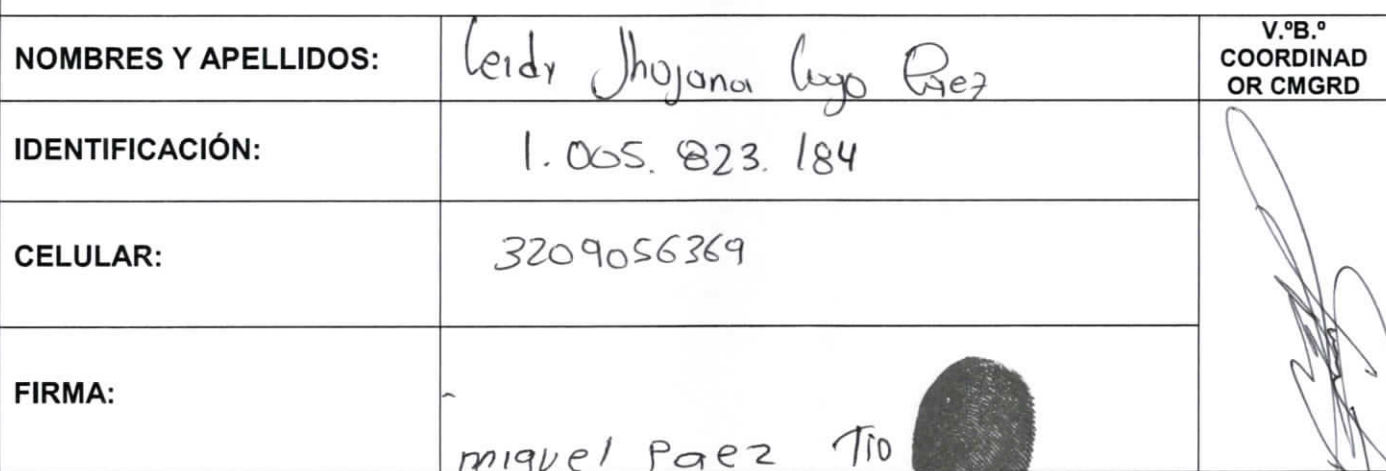 NOMBRES Y APELLIDOS: Leidy Jhojana Lugo Páez
V.ºB.º
COORDINAD
OR CMGRD
IDENTIFICACIÓN: 1.005.823.184
CELULAR: 3209056369
FIRMA:
miguel Paez Tio